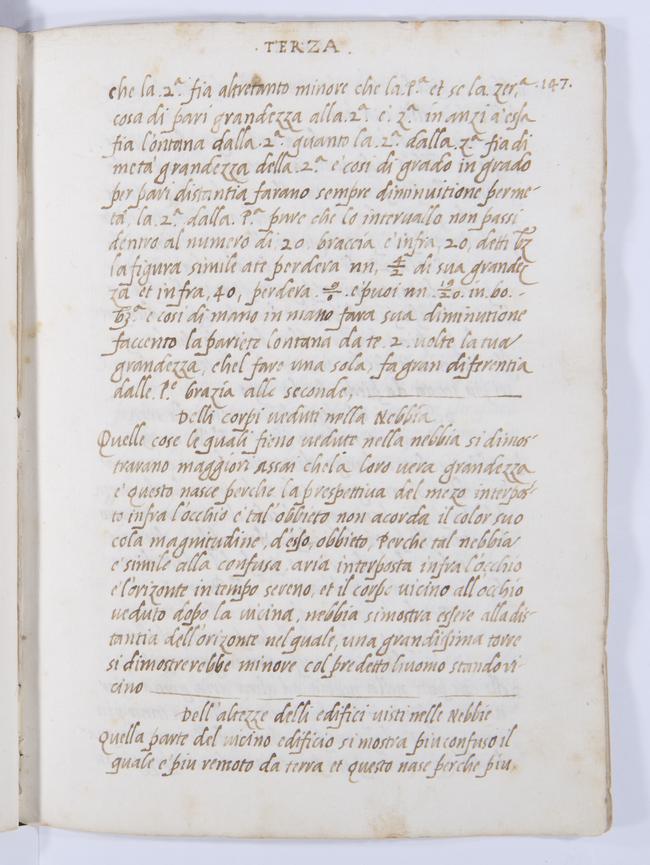 · TERZA ·
·147·
che la .2ª. fia altretanto minore che la .Pª. et se la zerª.
cosa di pari grandezza alla .2ª. e .zª. inanzi a essa
fia lontana dalla .2ª. quanto la .2ª. dalla .zª. fia di
meta grandezza della .2ª. e cosi di grado in grado
per pari distantia farano sempre diminuitione per me-
ta, la .2ª. dalla .Pª. pure che lo intervallo non passi
dentro al numero di .20. braccia e infra .20. detti bz
la figura simile a te perdera nn, 4/2 di sua grandez
za et infra .40, perdera . e puoi nn in .60.-
bzª. e cosi di mano in mano fara sua diminutione
faccento la pariete lontana da te .2. volte la tua
grandezza, chel fare una sola, fa gran diferentia
dalle .Pᵉ. brazia alle seconde,
Delli corpi veduti nella Nebbia
Quelle cose le quali fieno vedute nella nebbia si dimos-
trarano maggiori assai che la loro vera grandezza
e questo nasce perche la prespettiva del mezo interpos-
to infra l'occhio e tal' obbieto non acorda il color suo
cola magnitudine, d'esso, obbieto, Perche tal nebbia
e simile alla confusa aria interposta infra l'occhio
e l'orizonte in tempo sereno, et il corpo vicino all occhio
veduto dopo la vicina, nebbia si mostra essere alla dis-
tantia dell'orizonte nel quale, una grandissima torre
si dimostrerebbe minore col predetto huomo stando vi-
cino
Dell'altezze delli edifici visti nelle Nebbie
Quella parte del vicino edificio si mostra piu confuso il
quale e piu remoto da terra et questo nase perche piu